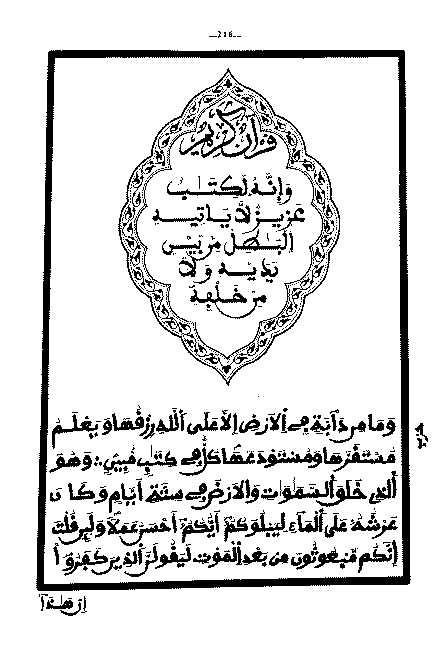 —216—
قرآن كريم
وَإِنَّهُۥ لَكِتَٰبٌ
عَزِيزٌ لَّا يَاتِيهِ
اِ۬لْبَٰطِلُ مِنۢ بَيْنِ
يَدَيْهِ وَلَا
مِنْ خَلْفِهِۦ
وَمَا مِن دَآبَّةٖ فِے اِ۬لَارْضِ إِلَّا عَلَى اَ۬للَّهِ رِزْقُهَا وَيَعْلَمُ
مُسْتَقَرَّهَا وَمُسْتَوْدَعَهَا كُلّٞ فِے كِتَٰبٖ مُّبِينٖۖ وَهُوَ
اَ۬لذِے خَلَقَ اَ۬لسَّمَٰوَٰتِ وَالَارْضَ فِے سِتَّةِ أَيَّامٖ وَكَانَ
عَرْشُهُۥ عَلَى اَ۬لْمَآءِ لِيَبْلُوَكُمُۥٓ أَيُّكُمُۥٓ أَحْسَنُ عَمَلاٗ وَلَئِن قُلْتَ
إِنَّكُم مَّبْعُوثُونَ مِنۢ بَعْدِ اِ۬لْمَوْتِ لَيَقُولَنَّ اَ۬لذِينَ كَفَرُوٓاْ
إِنْ هَٰذَآ
حزب